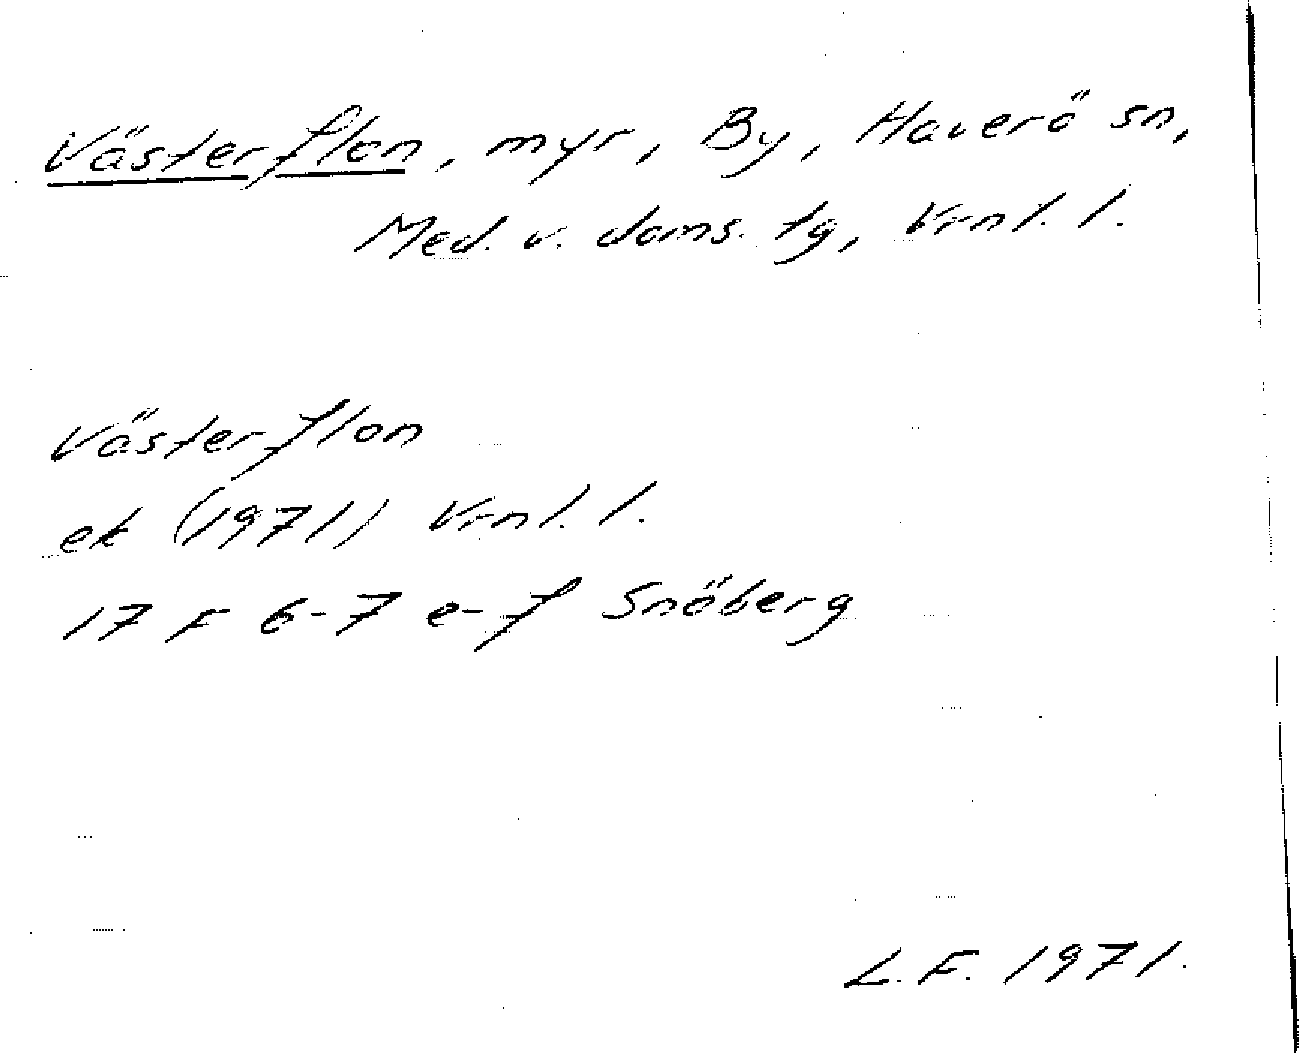 Västerflon, myr, By, Haverö sn,
Med. v. doms. tg, Vrnl. l.
Västerflon
ek (1971) Vrnl. l.
17 F 6-7 e-f Snöberg
L.F. 1971.